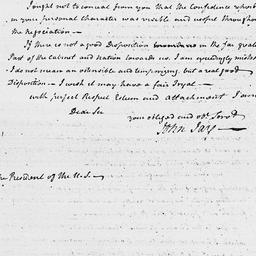 I ought not to conceal from you that the Confidence reposed
in your personal Character was visible and useful throughout
the negociation —
If there is not a good Disposition in the far greater
Part of the Cabinet and nation towards us, I am exceedingly mistaken
I do not mean an ostensible and temporizing, but a real good
Disposition — I wish it may have a fair Tryal —
with perfect Respect Esteem and attachment I am
Dear Sir
your obliged and obt. Servt
John Jay —
The President of the U.S. —